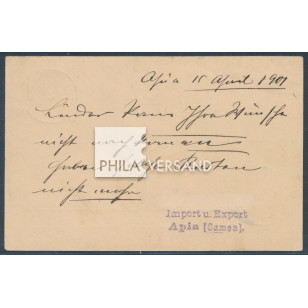 Apia 15 April 1901
Leider kann Ihre Wünsche
nicht nach
haben Karten
nicht mehr
PHILA VERSAND
Import u. Export
Apia (Samoa).